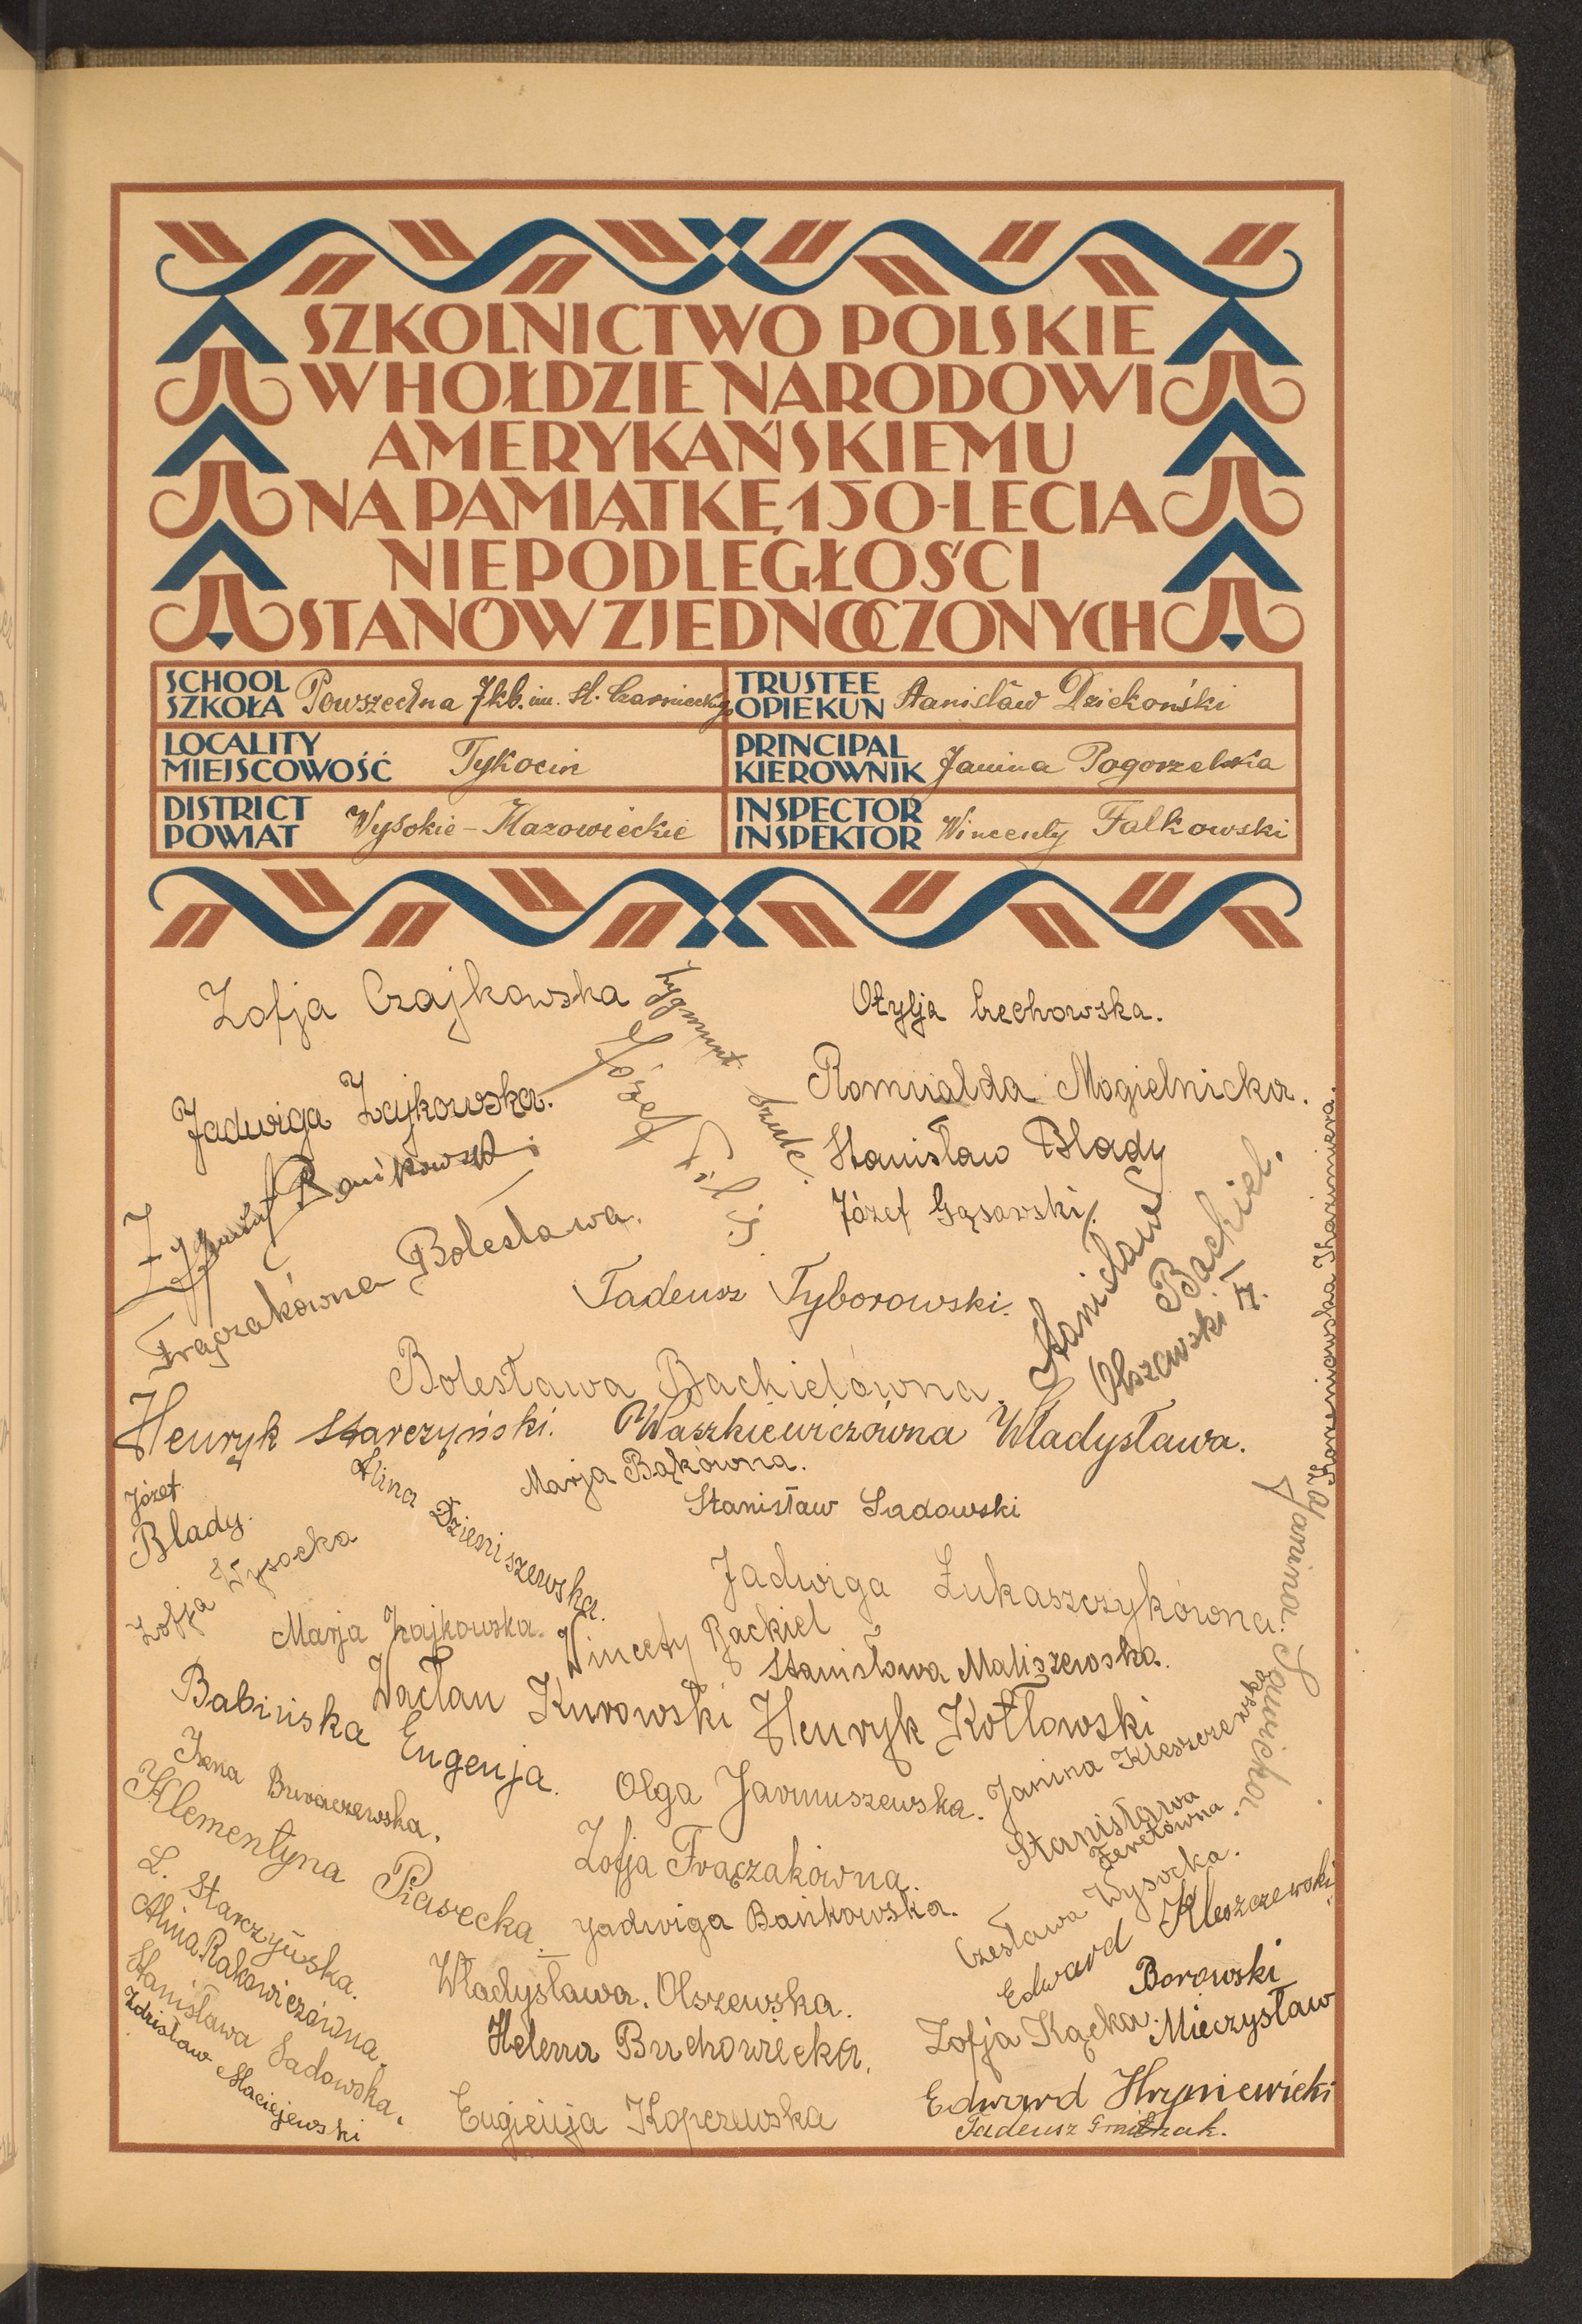 SZKOLNICTWO POLSKIE
W HOŁDZIE NARODOWI
AMERYKAŃSKIEMU
NA PAMIĄTKĘ 150-LECIA
NIEPODLEGŁOŚCI
STANÓW ZJEDNOCZONYCH
SCHOOL
SZKOŁA Powszechna 7kl. im. St. Czarnieckiego
TRUSTEE
OPIEKUN Stanisław Dziekoński
LOCALITY
MIEJSCOWOŚĆ Tykocin
PRINCIPAL
KIEROWNIK Janina Pogorzelska
DISTRICT
POWIAT Wysokie-Mazowieckie
INSPECTOR
INSPEKTOR Wincenty Falkowski
Zofja Czajkowska
Zygmunt Szulc.
Otylja Cechowska.
Józef Filis.
Romualda Mogielnicka.
Jadwiga Zajkowska.
Stanisław Blady
Zygmunt Bańkowski
Józef Gąsowski.
Frączakówna Bolesława.
Stanisław Backiel.
Tadeusz Tyborowski.
Olszewski Z.
Korzeniowska Kazimiera.
Bolesława Backielówna.
Henryk Starczyński.
Waszkiewiczówna Władysława.
Marja Bąkówna.
Józef
Blady.
Alina Dzieniszewska.
Stanisław Sadowski
Zofja Wysocka
Jadwiga Łukaszczykówna.
Janina Sawicka
Marja Zajkowska.
Wincety Backiel
Stanisława Maliszewska.
Wacław Kurowski
Henryk Kotłowski
Babińska Eugenja.
Olga Jarmuszewska.
Janina Kleszczewska
Irena
Klementyna Piasecka.
Zofja Frączakówna.
Stanisława
Zeretówna.
L. Starczyńska.
Jadwiga Bańkowska.
Czesława Wysocka.
Edward Kleszczewski
Alina Rakowiczówna.
Władysława. Olszewska.
Borowski
Mieczysław
Stanisława Sadowska.
Helena Buchowiecka.
Zofja Kącka.
Zdzisław Maciejewski
Eugienja Kopczewska
Edward Hryniewicki
Tadeusz